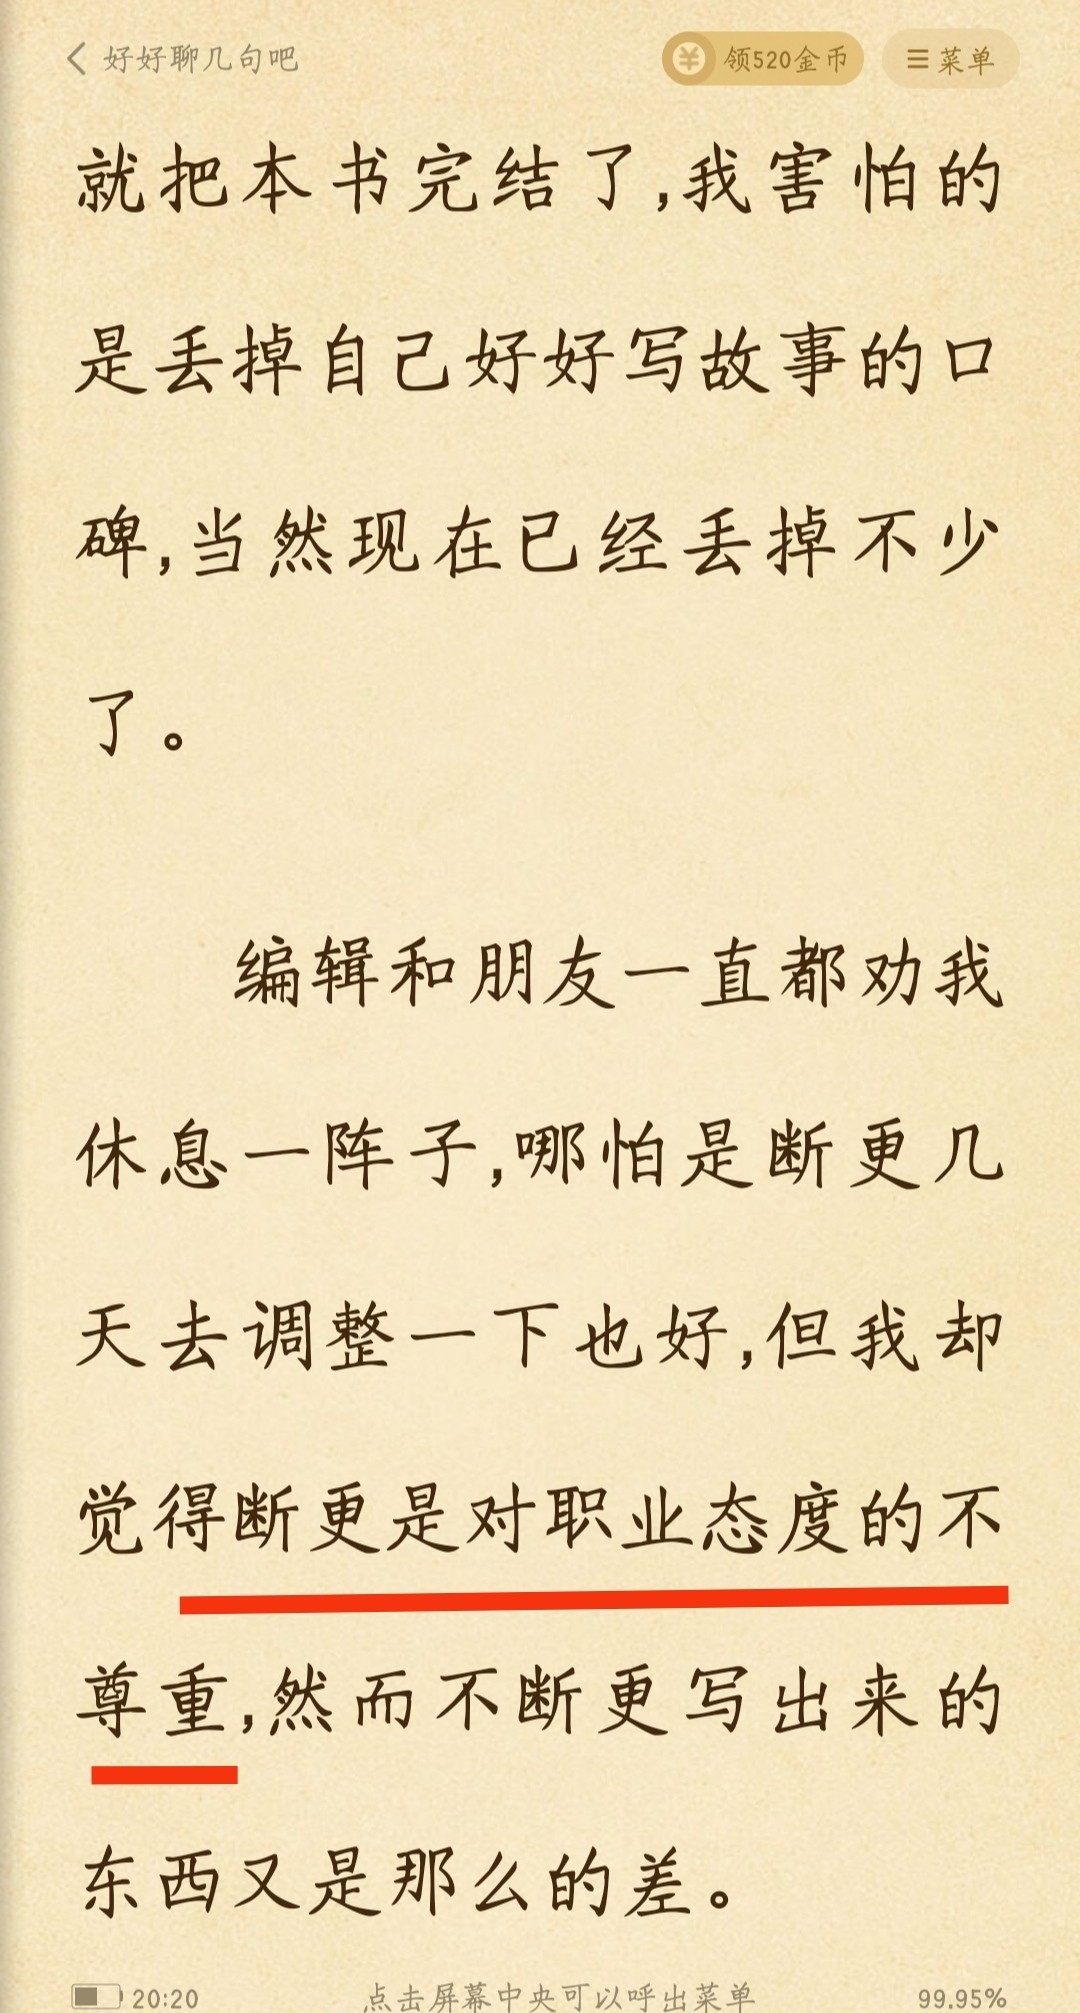 好好聊几句吧 领520金币 菜单
就把本书完结了,我害怕的
是丢掉自己好好写故事的口
碑,当然现在已经丢掉不少
了。
编辑和朋友一直都劝我
休息一阵子,哪怕是断更几
天去调整一下也好,但我却
觉得断更是对职业态度的不
尊重,然而不断更写出来的
东西又是那么的差。
20:20 点击屏幕中央可以呼出菜单 99.95%